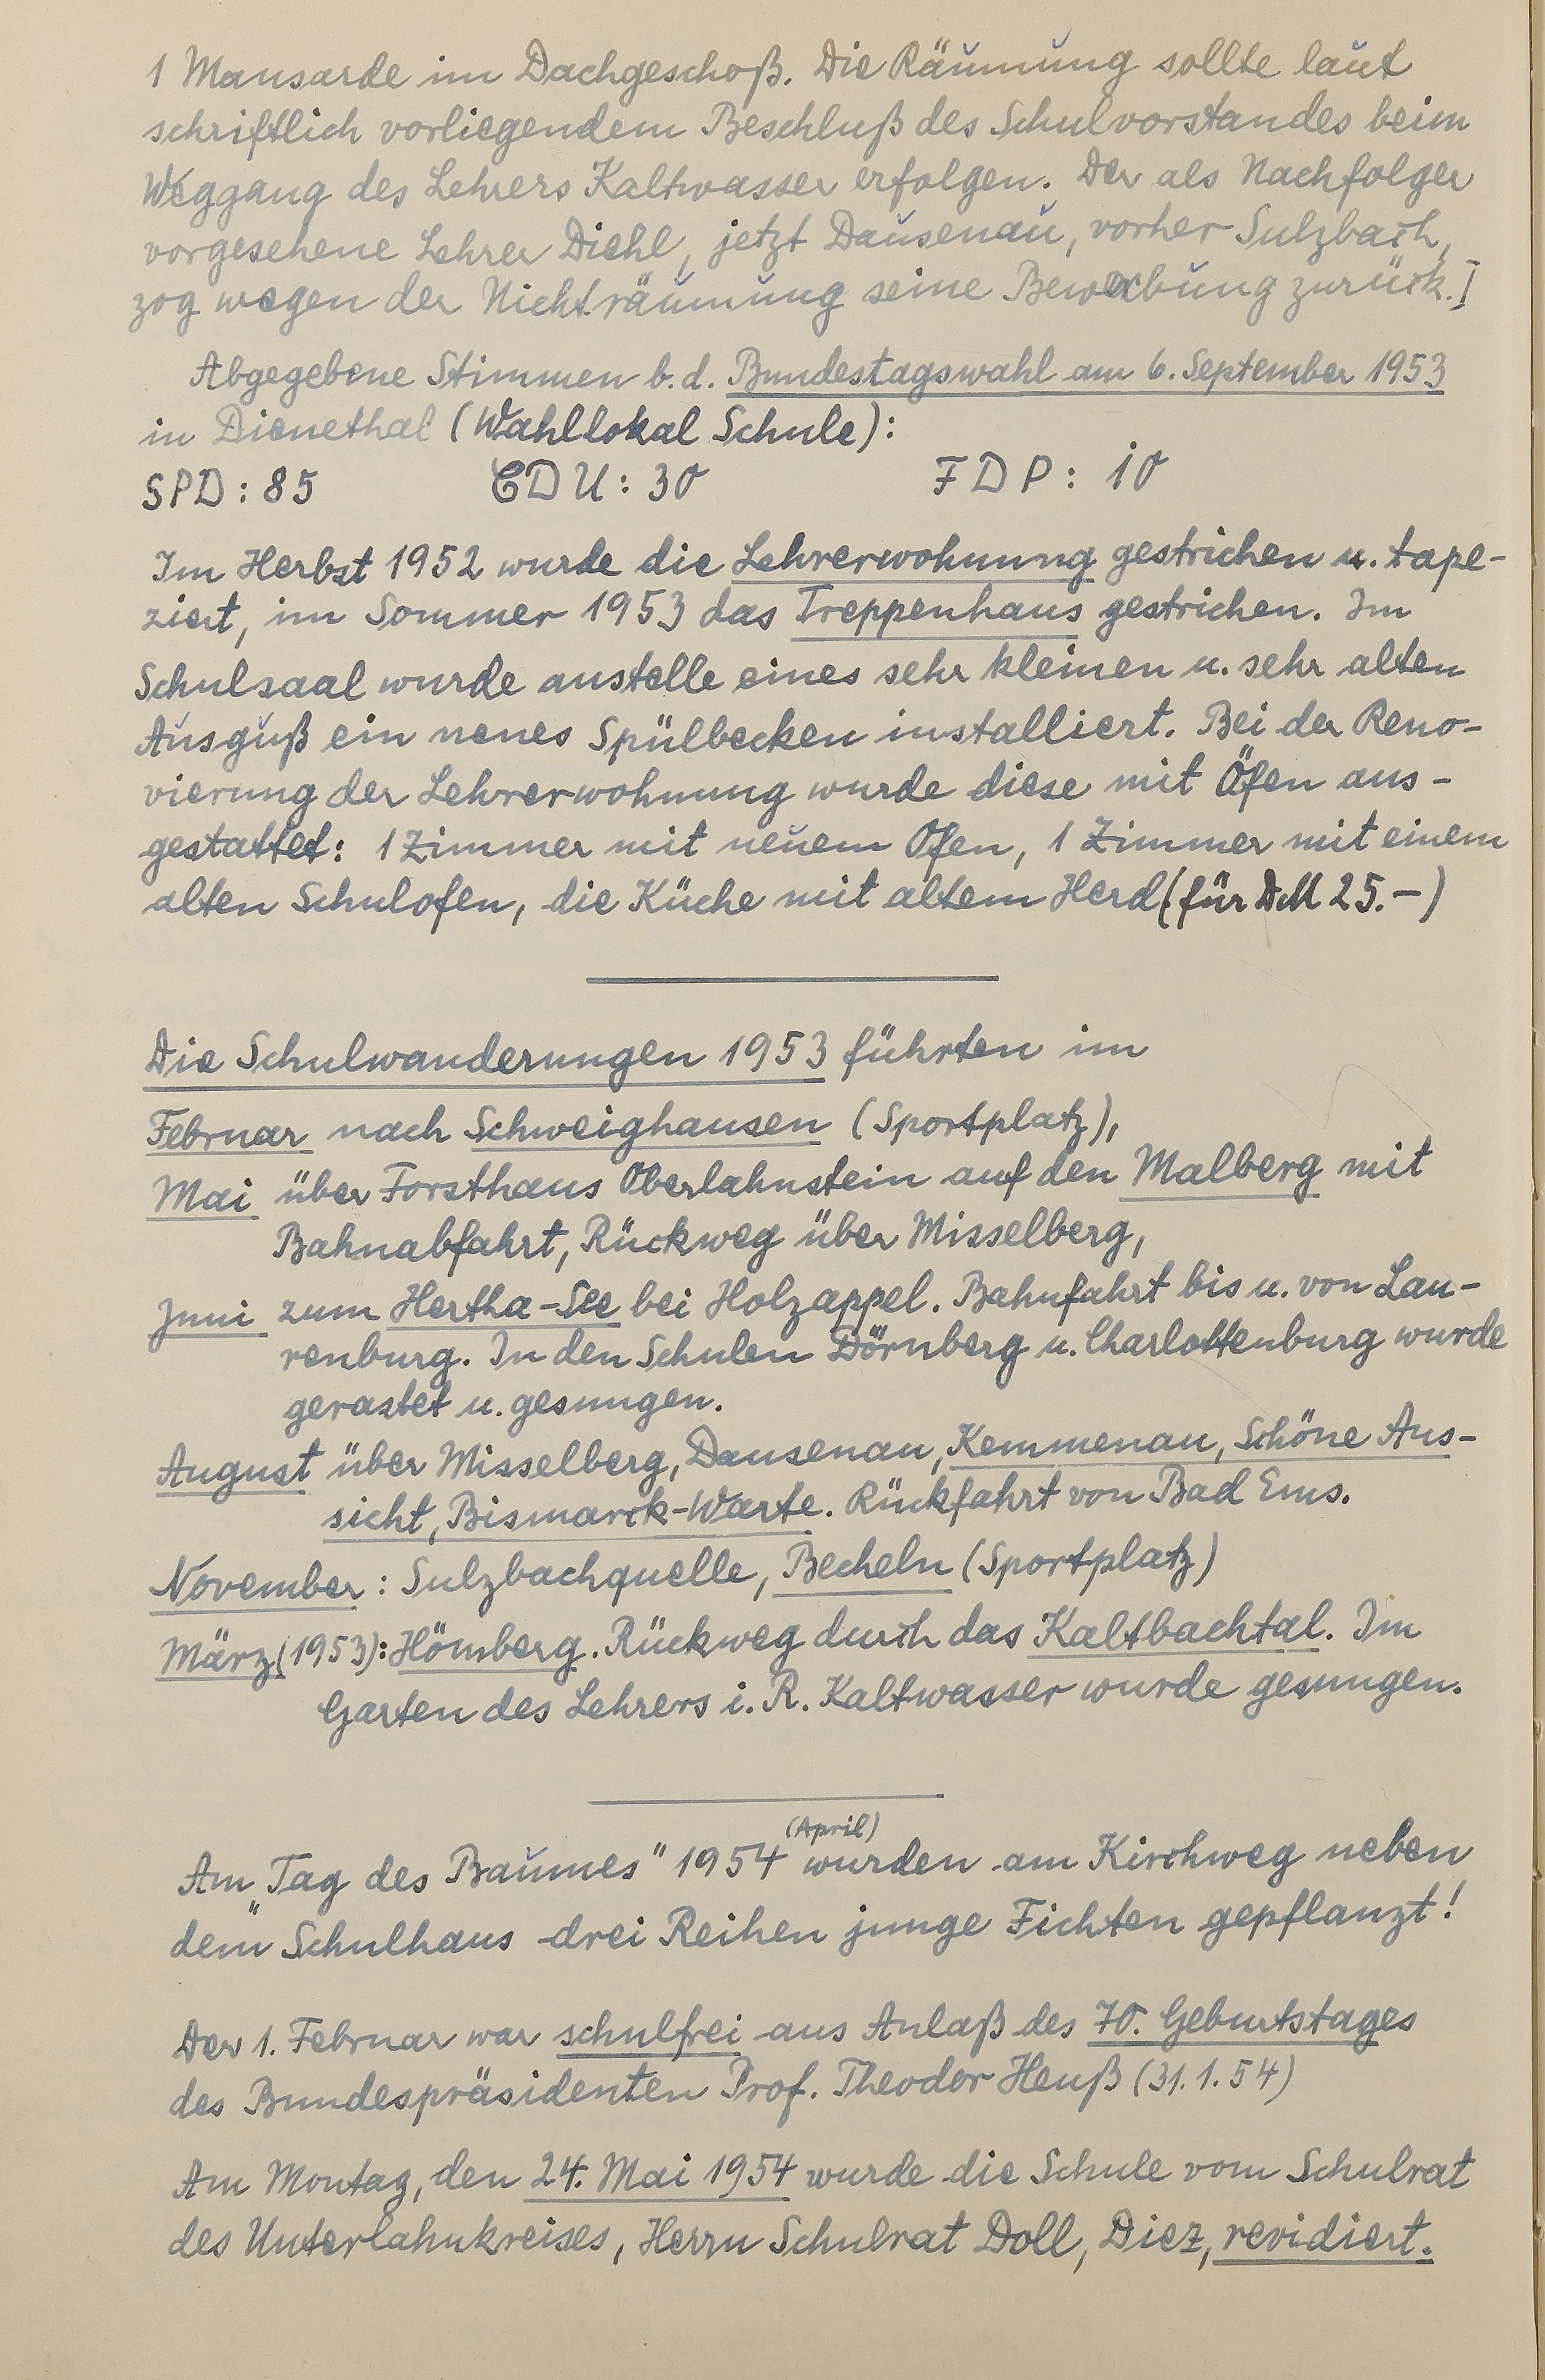 1 Mansarde im Dachgeschoß. Die Räumung sollte laut
schriftlich vorliegendem Beschluß des Schulvorstandes beim
Weggang des Lehrers Kaltwasser erfolgen. Der als Nachfolger
vorgesehene Lehrer Diehl, jetzt Dausenau, vorher Sulzbach,
zog wegen der Nichträumung seine Bewerbung zurück.]
Abgegebene Stimmen b. d. Bundestagswahl am 6. September 1953
in Dienethal (Wahllokal Schule):
SPD: 85 CDU: 30 FDP: 10
Im Herbst 1952 wurde die Lehrerwohnung gestrichen u. tape-
ziert, im Sommer 1953 das Treppenhaus gestrichen. Im
Schulsaal wurde anstelle eines sehr kleinen u. sehr alten
Ausguß ein neues Spülbecken installiert. Bei der Reno-
vierung der Lehrerwohnung wurde diese mit Öfen aus-
gestattet: 1 Zimmer mit neuem Ofen, 1 Zimmer mit einem
alten Schulofen, die Küche mit altem Herd (für DM 25.-)
Die Schulwanderungen 1953 führten im
Februar nach Schweighausen (Sportplatz),
Mai über Forsthaus Oberlahnstein auf den Malberg mit
Bahnabfahrt, Rückweg über Misselberg,
Juni zum Hertha-See bei Holzappel. Bahnfahrt bis u. von Lau-
renburg. In den Schulen Dörnberg u. Charlottenburg wurde
gerastet u. gesungen.
August über Misselberg, Dausenau, Kemmenau, Schöne Aus-
sicht, Bismarck-Warte. Rückfahrt von Bad Ems.
November: Sulzbachquelle, Becheln (Sportplatz)
März (1953): Hömberg. Rückweg durch das Kaltbachtal. Im
Garten des Lehrers i. R. Kaltwasser wurde gesungen.
(April)
Am „Tag des Baumes" 1954 wurden am Kirchweg neben
dem Schulhaus drei Reihen junge Fichten gepflanzt!
Der 1. Februar war schulfrei aus Anlaß des 70. Geburtstages
des Bundespräsidenten Prof. Theodor Heuß (31.1.54)
Am Montag, den 24. Mai 1954 wurde die Schule vom Schulrat
des Unterlahnkreises, Herrn Schulrat Doll, Diez, revidiert.